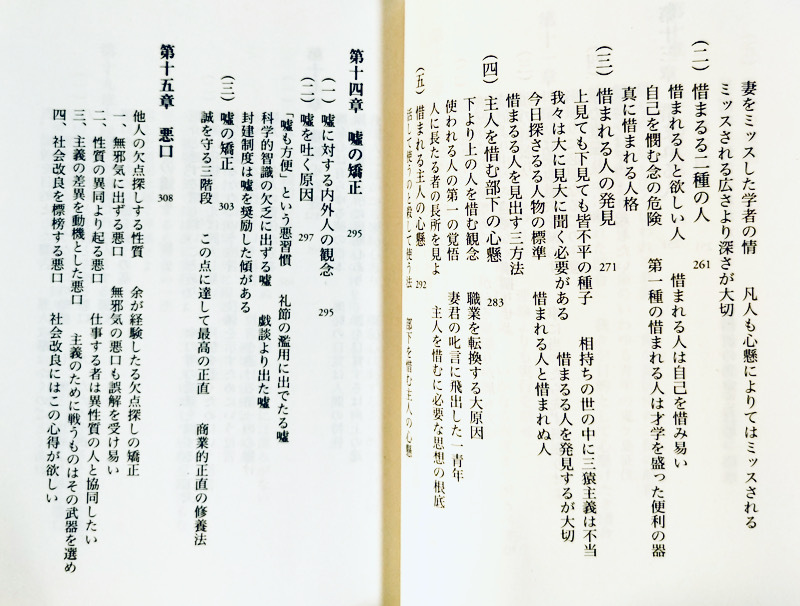 妻をミッスした学者の情　凡人も心懸によりてはミッスされる
ミッスされる広さより深さが大切
（二）惜まるる二種の人　261
惜まれる人と欲しい人　惜まれる人は自己を惜み易い
自己を憫む念の危険　第一種の惜まれる人は才学を盛った便利の器
真に惜まれる人格
（三）惜まれる人の発見　271
上見ても下見ても皆不平の種子　相持ちの世の中に三猿主義は不当
我々は大に見大に聞く必要がある　惜まるる人を発見するが大切
今日探さるる人物の標準　惜まれる人と惜まれぬ人
惜まるる人を見出す三方法
（四）主人を惜む部下の心懸　283
下より上の人を惜む観念　職業を転換する大原因
使われる人の第一の覚悟　妻君の叱言に飛出した一青年
人に長たる者の長所を見よ　主人を惜むに必要な思想の根底
（五）惜まれる主人の心懸　292
活して使うのと殺して使う法　部下を惜む主人の心懸
第十四章　嘘の矯正　295
（一）嘘に対する内外人の観念　295
（二）嘘を吐く原因　297
「嘘も方便」という悪習慣　礼節の濫用に出でたる嘘
科学的智識の欠乏に出ずる嘘　戯談より出た嘘
封建制度は嘘を奨励した傾がある
（三）嘘の矯正　303
誠を守る三階段　この点に達して最高の正直　商業的正直の修養法
第十五章　悪口　308
他人の欠点探しする性質　余が経験したる欠点探しの矯正
一、無邪気に出ずる悪口　無邪気の悪口も誤解を受け易い
二、性質の異同より起る悪口　仕事する者は異性質の人と協同したい
三、主義の差異を動機とした悪口　主義のために戦うものはその武器を選め
四、社会改良を標榜する悪口　社会改良にはこの心得が欲しい